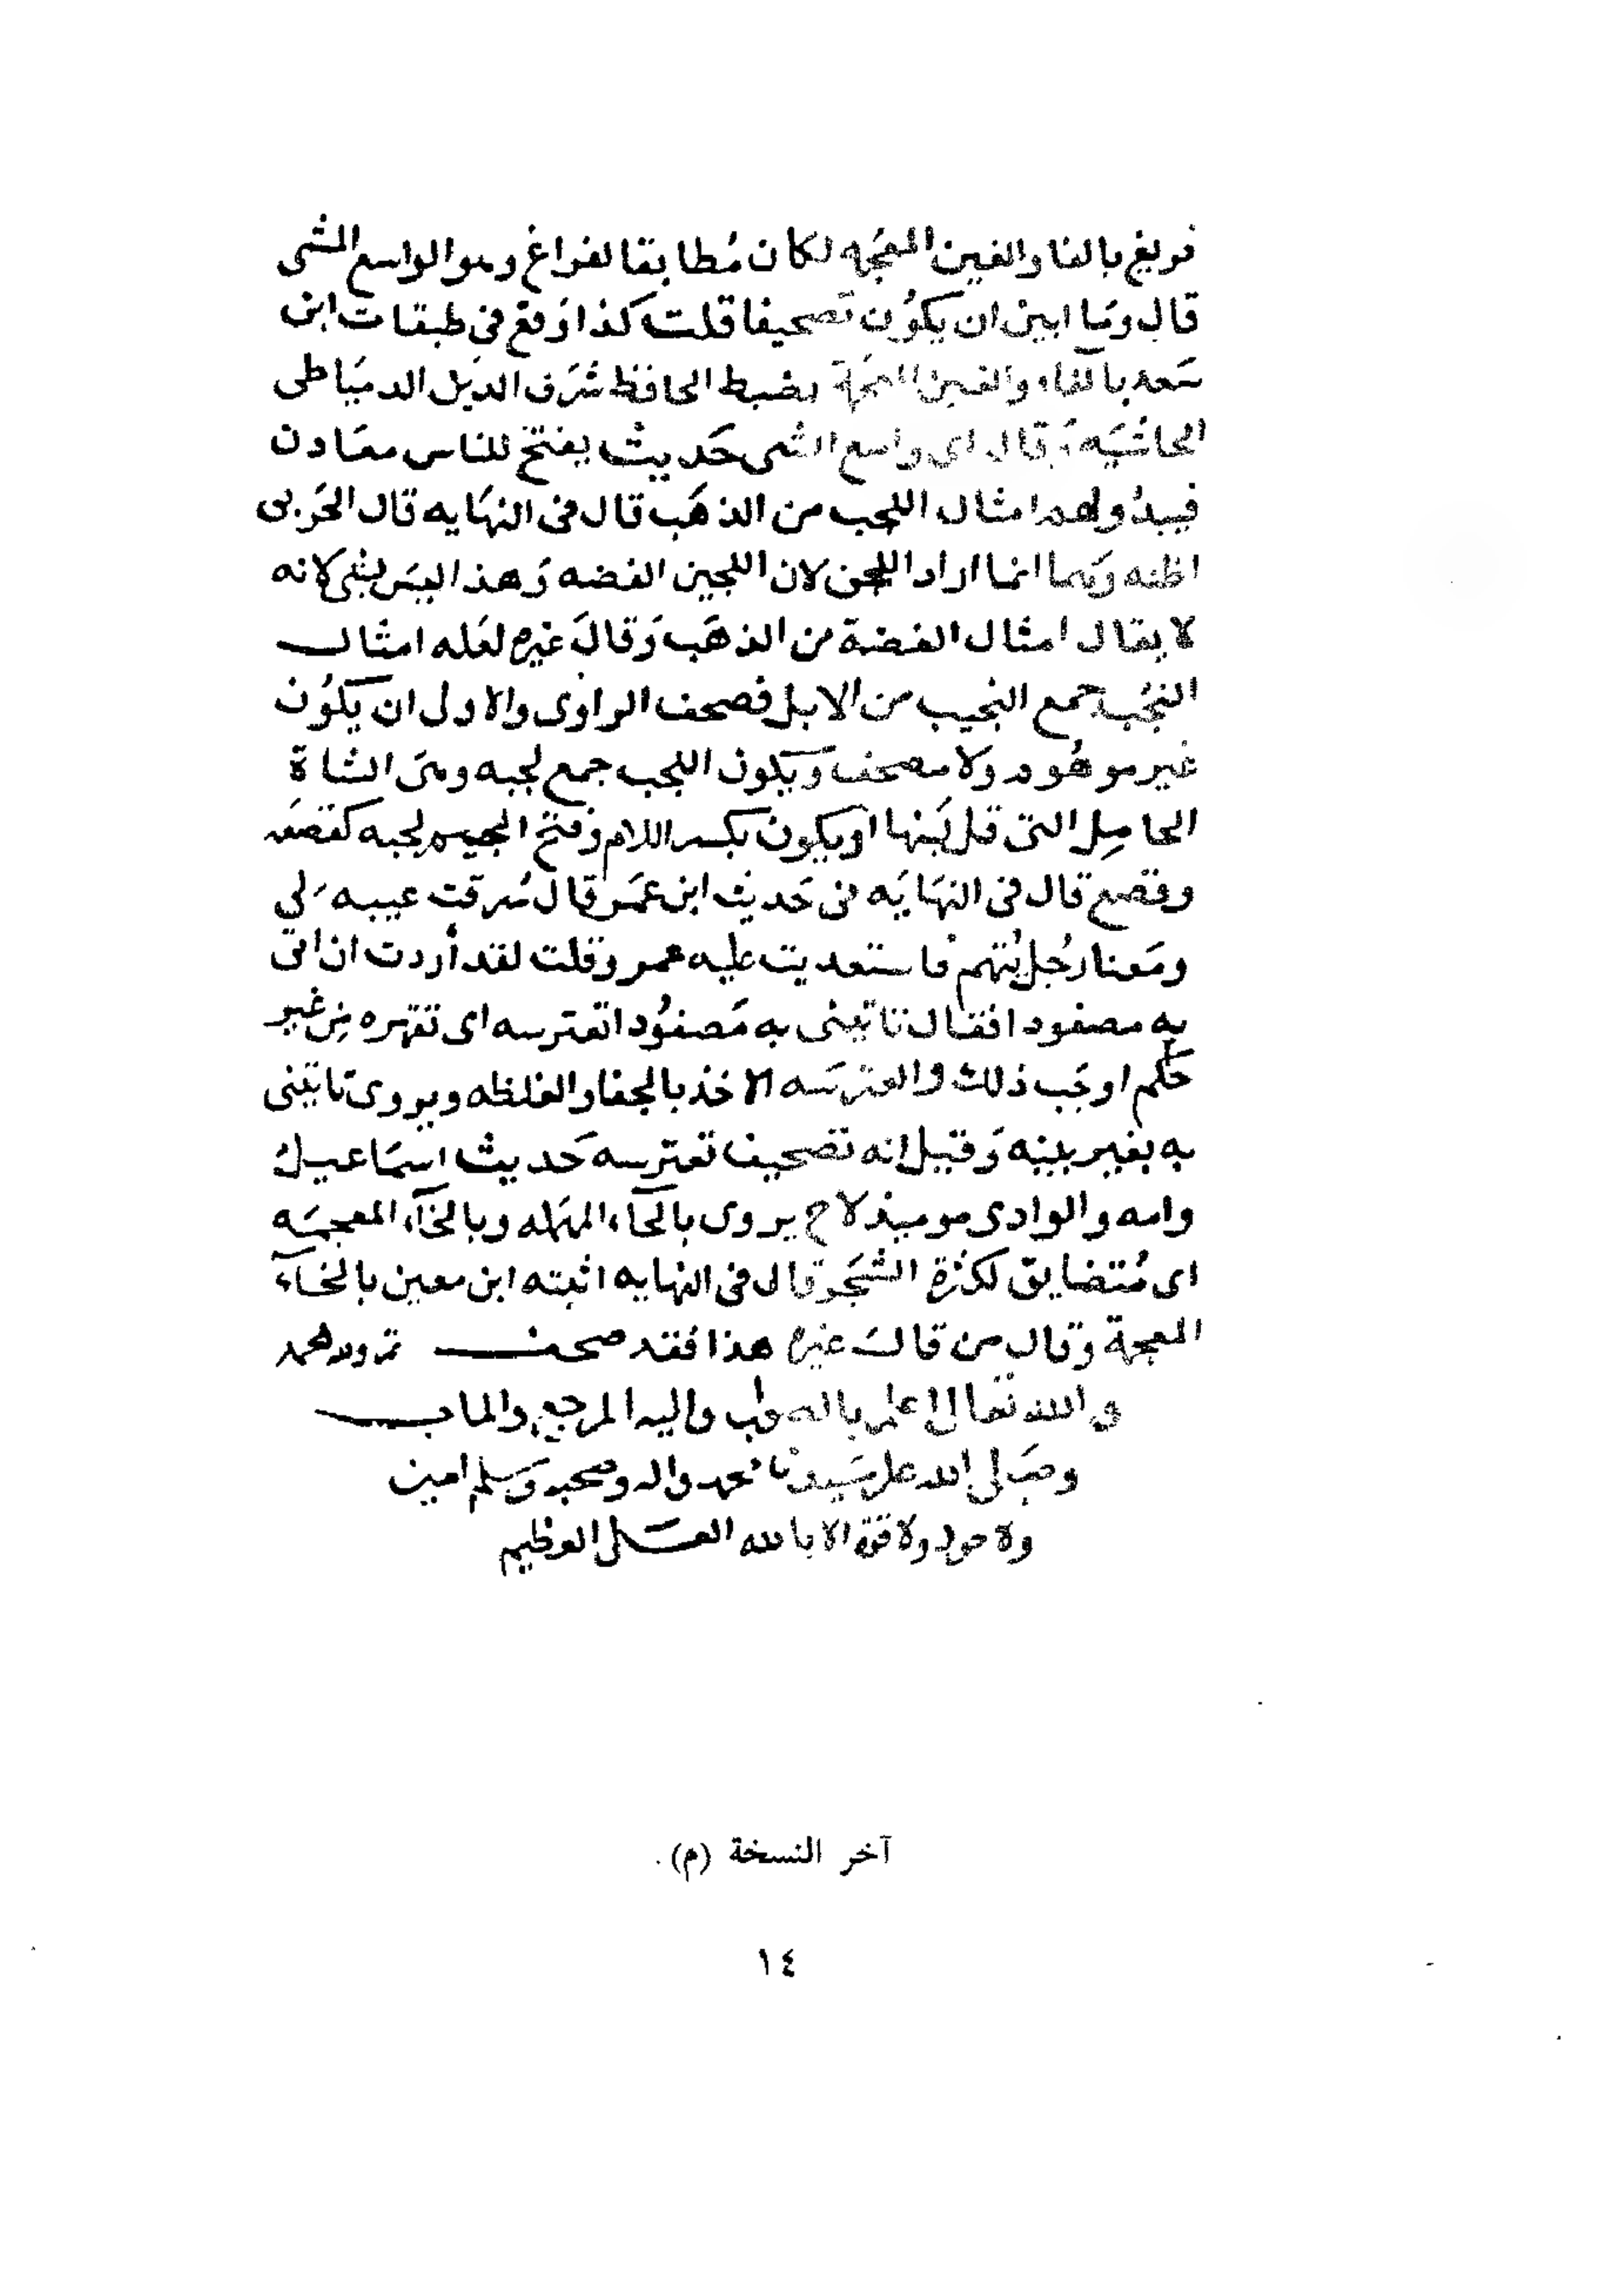 فريغ بالفا والغين المعجمه لكان مُطابقا لفراغ وهو الواسع المشى
قال وما ابين ان يكوُن تصحيفا قلت كذا وَقع في طبقات ابن
سَعد بالفاء والغين المعجمة بضبط الحافظ شَرَف الدين الدميَاطى
الحاشيَه وَقال اى واسع المشى حَديث يفتح للناس معَادن
فيبدُو لهم امثال اللجب من الذهَب قال في النهَايه قال الحَربى
اظنه وَهما انما اراد اللجن لان اللجين الفضه وَهذا ليسَ بشى لانه
لا يقال امثال الفضة من الذهَب وَقالَ غيره لعَله امثال
النجُب جمع النجيب من الابل فصحف الراوى والاولى ان يكوُن
غير موهُوم ولَا مصحف وَيكون اللجب جمع لجبه وهىَ الشاة
الحامِل التى قل لبَنها او يكون بكسر اللام وَفتح الجيم لجبه كقصعَه
وقصع قال فى النهَايَه فى حَديث ابن عمَر قال سُرقت عيبه لي
ومَعنا رجُل يُتهم فاستعديت عليه عمر وَقلت لقد أردت ان اتى
به مصفودا فقال تاتينى به مَصفوُدا تعترسه اى تقهره مِن غير
حكم اوجَب ذلك والعترسَه الاخذ بالجفا والغلظه ويروى تاتينى
به بغير بينه وَقيل انه تصحيف تعترسه حَديث اسمَاعيل
وامه والوادى يوميذ لاح يروى بالحَآء المهمَله وبالخآء المعجمَه
اى مُتضايق لكثرة الشجَر وَقال فى النهايه اثبته ابن معين بالخآء
المعجمة وَقال من قال غيره هذا فقد صحف تم ولله الحمد
والله تعَالى اعلم بالصواب واليه المرجع والماب
وصَلى الله على سَيدنا محمد واله وصحبه وَسلم امين
ولا حول ولا قوة الا بالله العَلى العظيم
آخر النسخة (م).
١٤